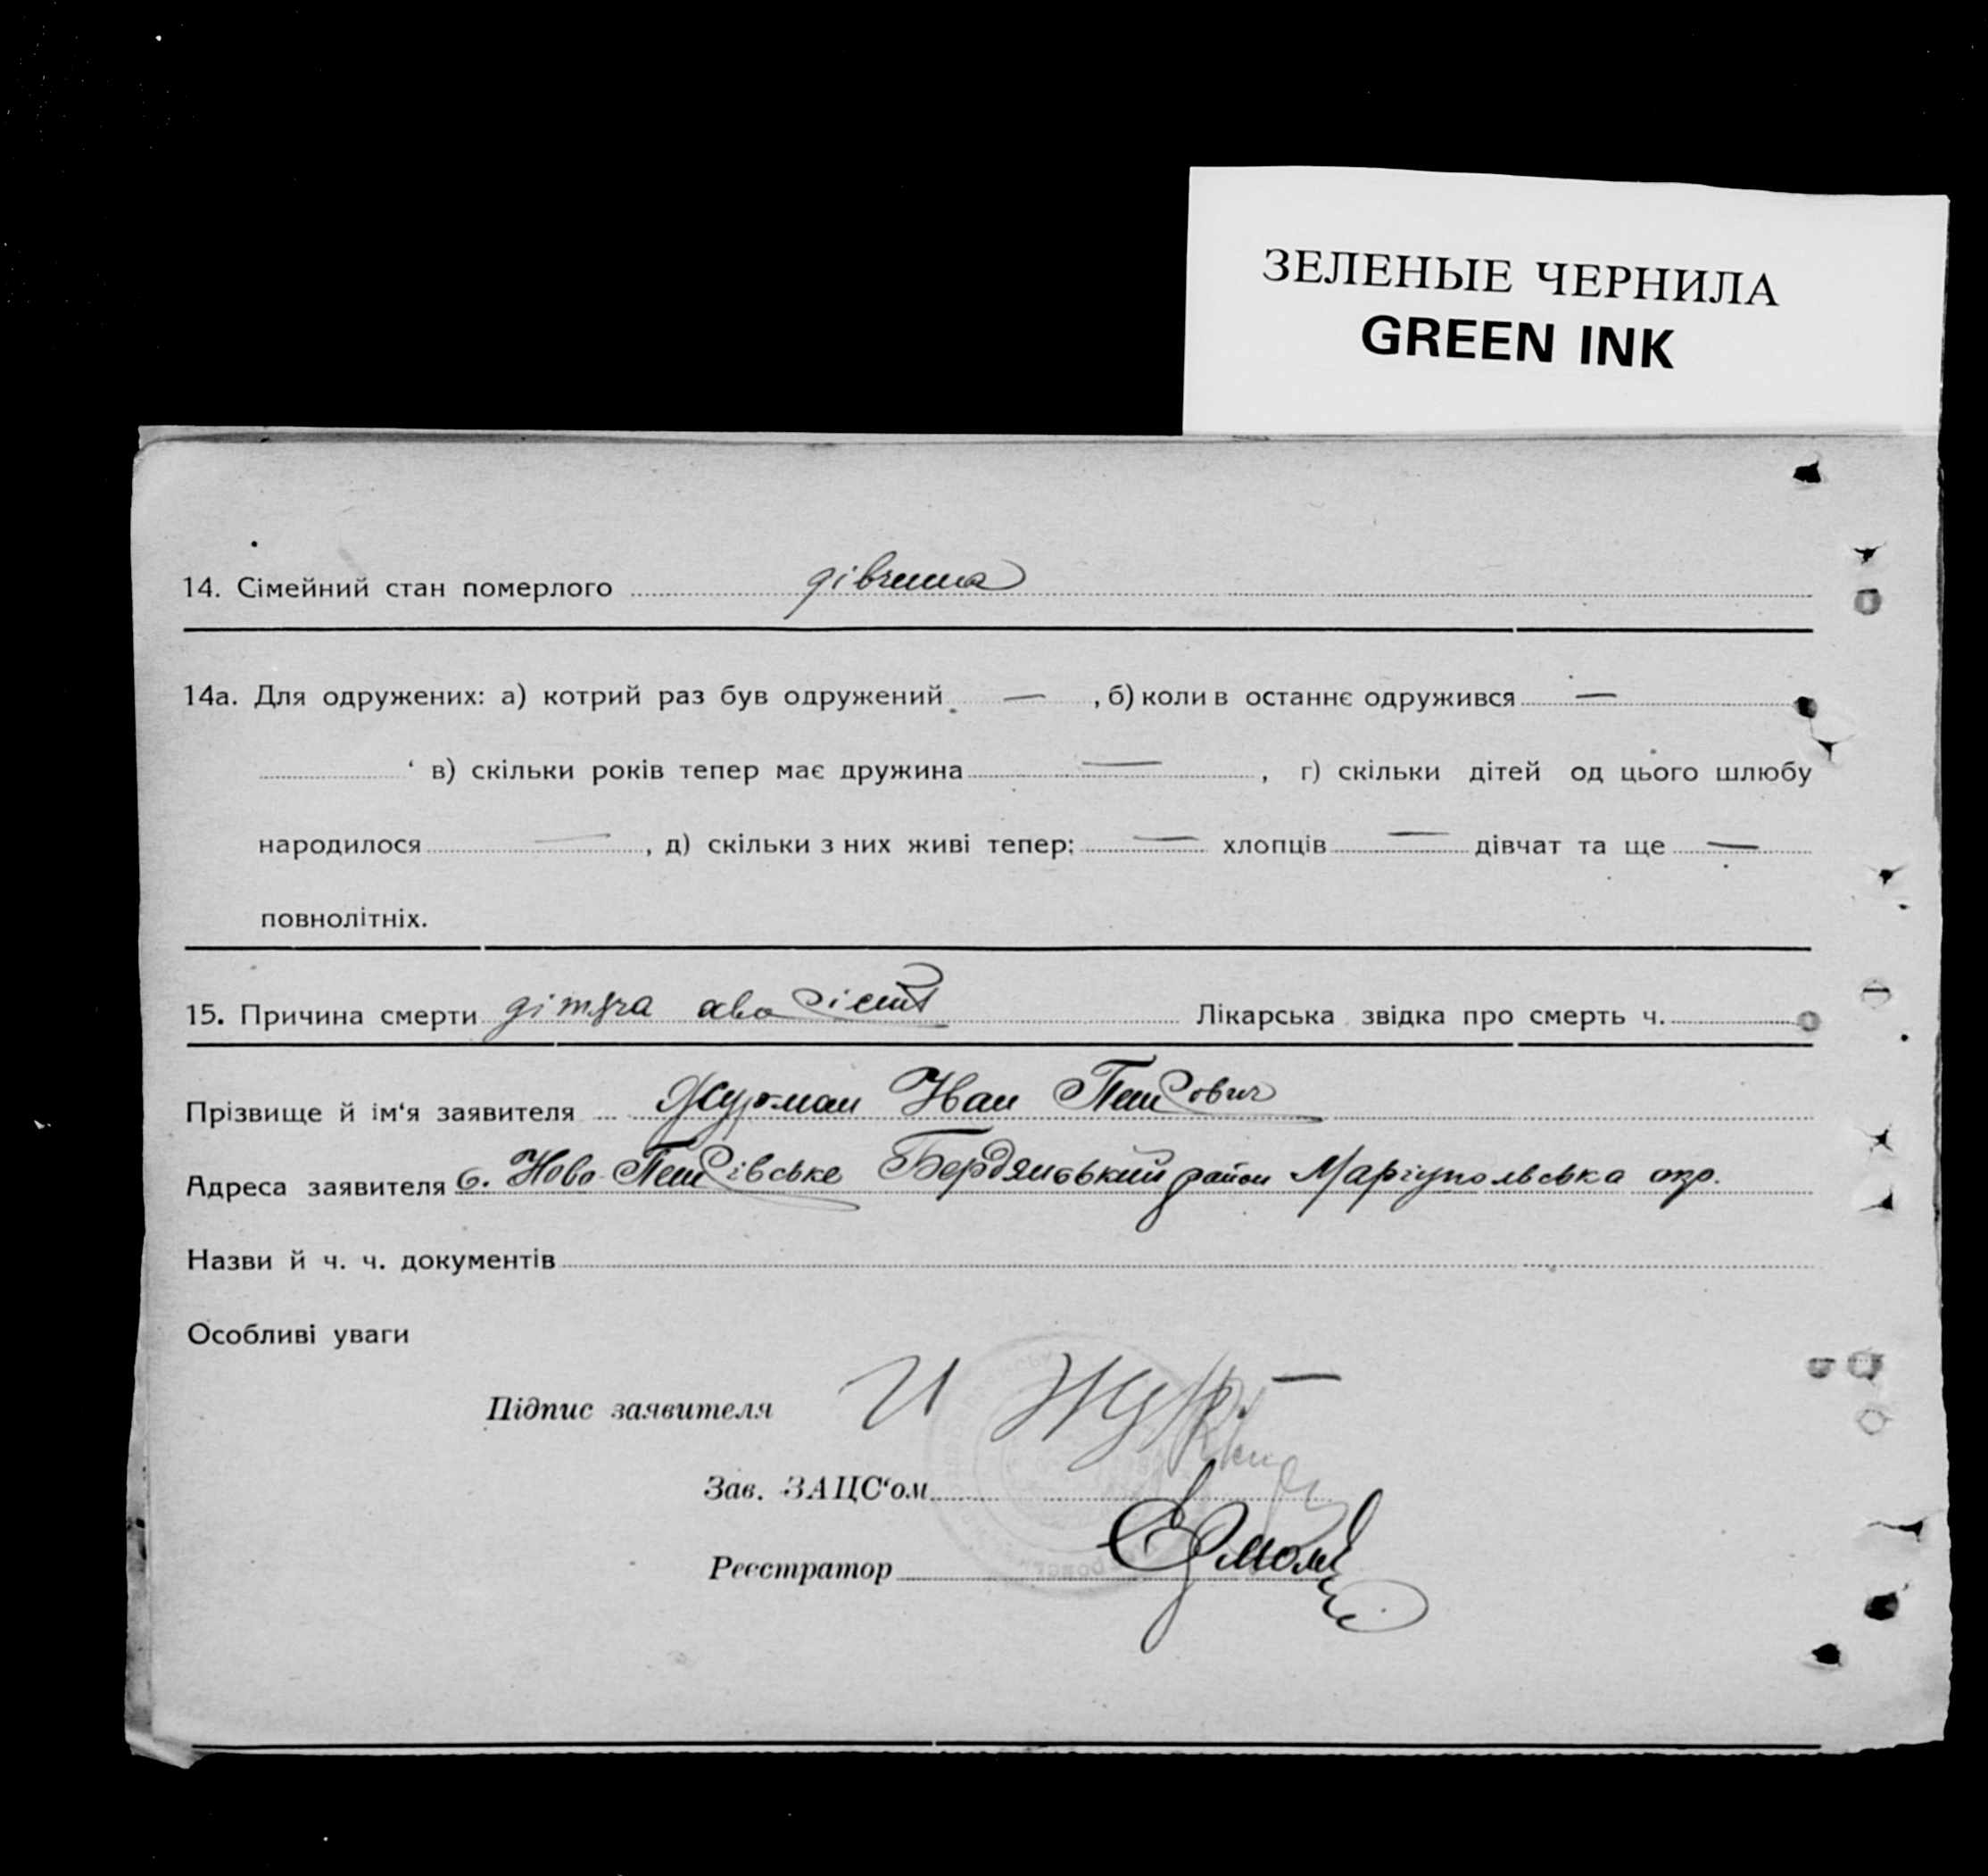 ЗЕЛЕНЫЕ ЧЕРНИЛА
GREEN INK
14. Сімейний стан померлого дівчина
14а. Для одружених: а) котрий раз був одружений — , б) коли в останнє одружився —
в) скільки років тепер має дружина — , г) скільки дітей од цього шлюбу
народилося — , д) скільки з них живі тепер: — хлопців — дівчат та ще —
повнолітніх.
15. Причина смерти дітяча Лікарська звідка про смерть ч.
Прізвище й ім'я заявителя Иван Петрович
Адреса заявителя с. Ново-Петрівське Бердянський район Маріупольська окр.
Назви й ч. ч. документів
Особливі уваги
Підпис заявителя И
Зав. ЗАЦС'ом
Реєстратор